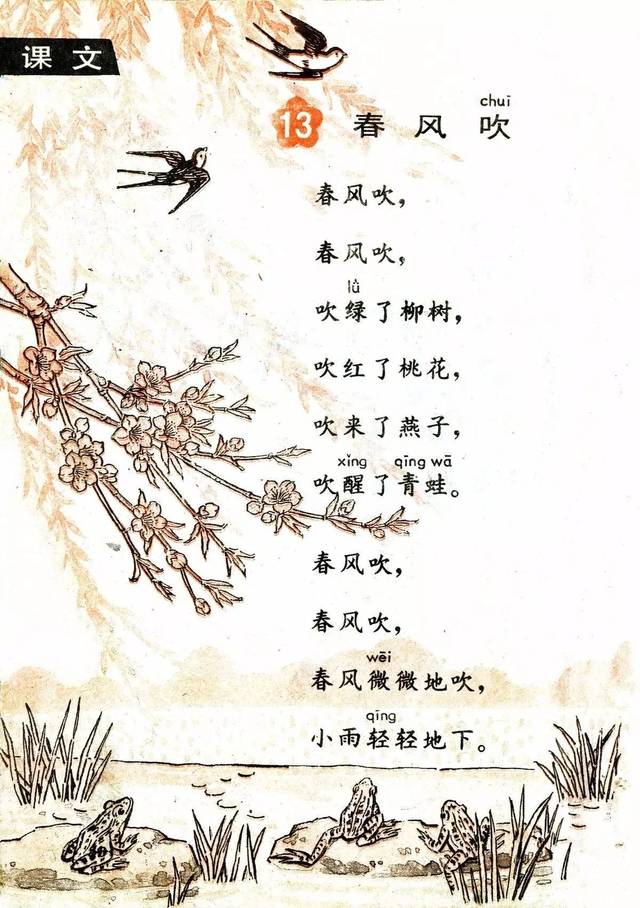 课文
chuī
13 春风吹
春风吹，
春风吹，
lǜ
吹绿了柳树，
吹红了桃花，
吹来了燕子，
xǐng qīng wā
吹醒了青蛙。
春风吹，
春风吹，
wēi
春风微微地吹，
qīng
小雨轻轻地下。